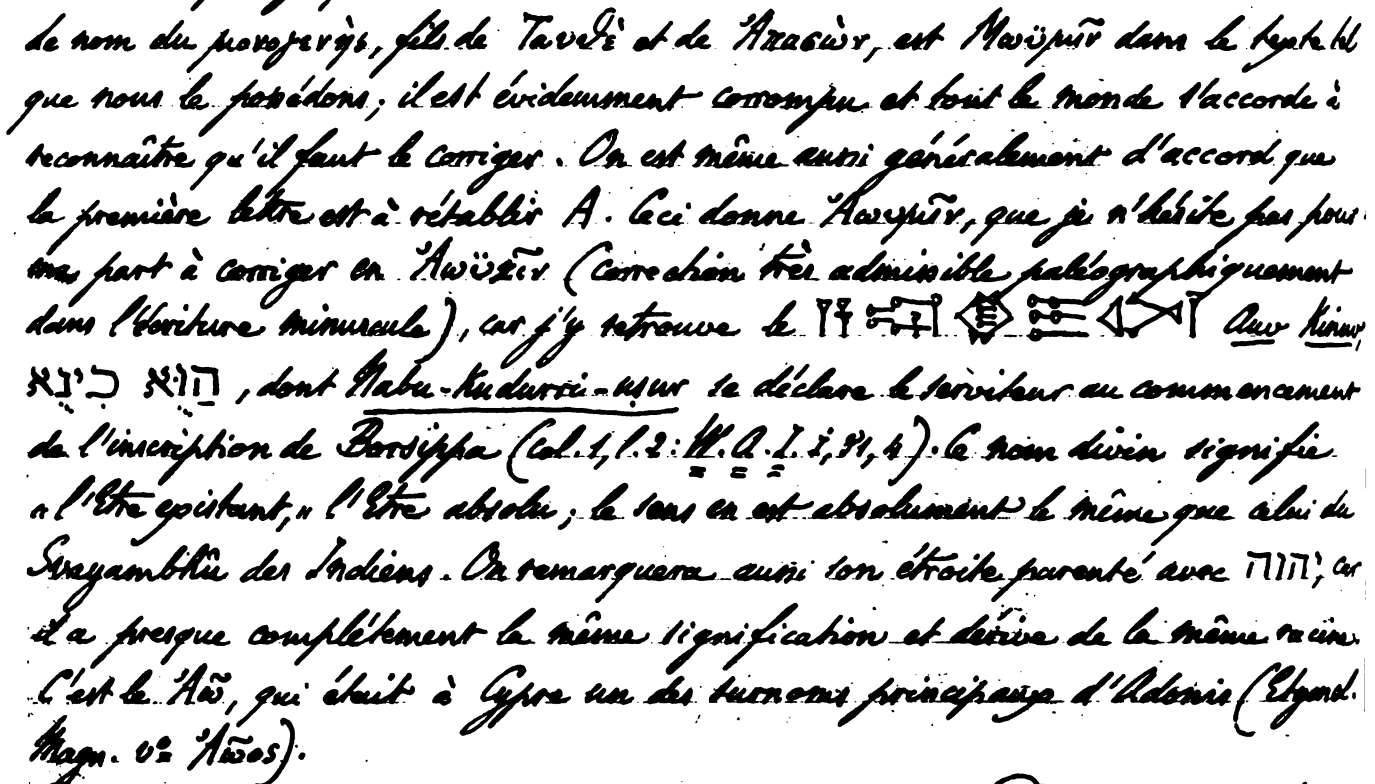 Le nom du μονογενής, fils de Ταυθὲ et de Ἀπασὼν, est Μωϋμῖν dans le texte tel
que nous le possédons; il est évidemment corrompu et tout le monde s'accorde à
reconnaître qu'il faut le corriger. On est même aussi généralement d'accord que
la première lettre est à rétablir A. Ceci donne Ἀωυμῖν, que je n'hésite pas pour
ma part à corriger en Ἀωϋκῖν (correction très admissible paléographiquement
dans l'écriture minuscule), car j'y retrouve le Auv Kinuv,
הַוּא כִינָא, dont Nabu-Kudurri-uṣur se déclare le serviteur au commencement
de l'inscription de Borsippa (Col. 1, l. 2: W.A.I. I, 51, 4). Ce nom divin signifie
« l'Etre existant, » l'Etre absolu; le sens en est absolument le même que celui du
Svayambhû des Indiens. On remarquera aussi son étroite parenté avec יהוה, car
il a presque complétement la même signification et dérive de la même racine.
C'est le Ἀῶ, qui était à Cypre un des surnoms principaux d'Adonis (Etymol.
Magn. vº Ἀῶος).